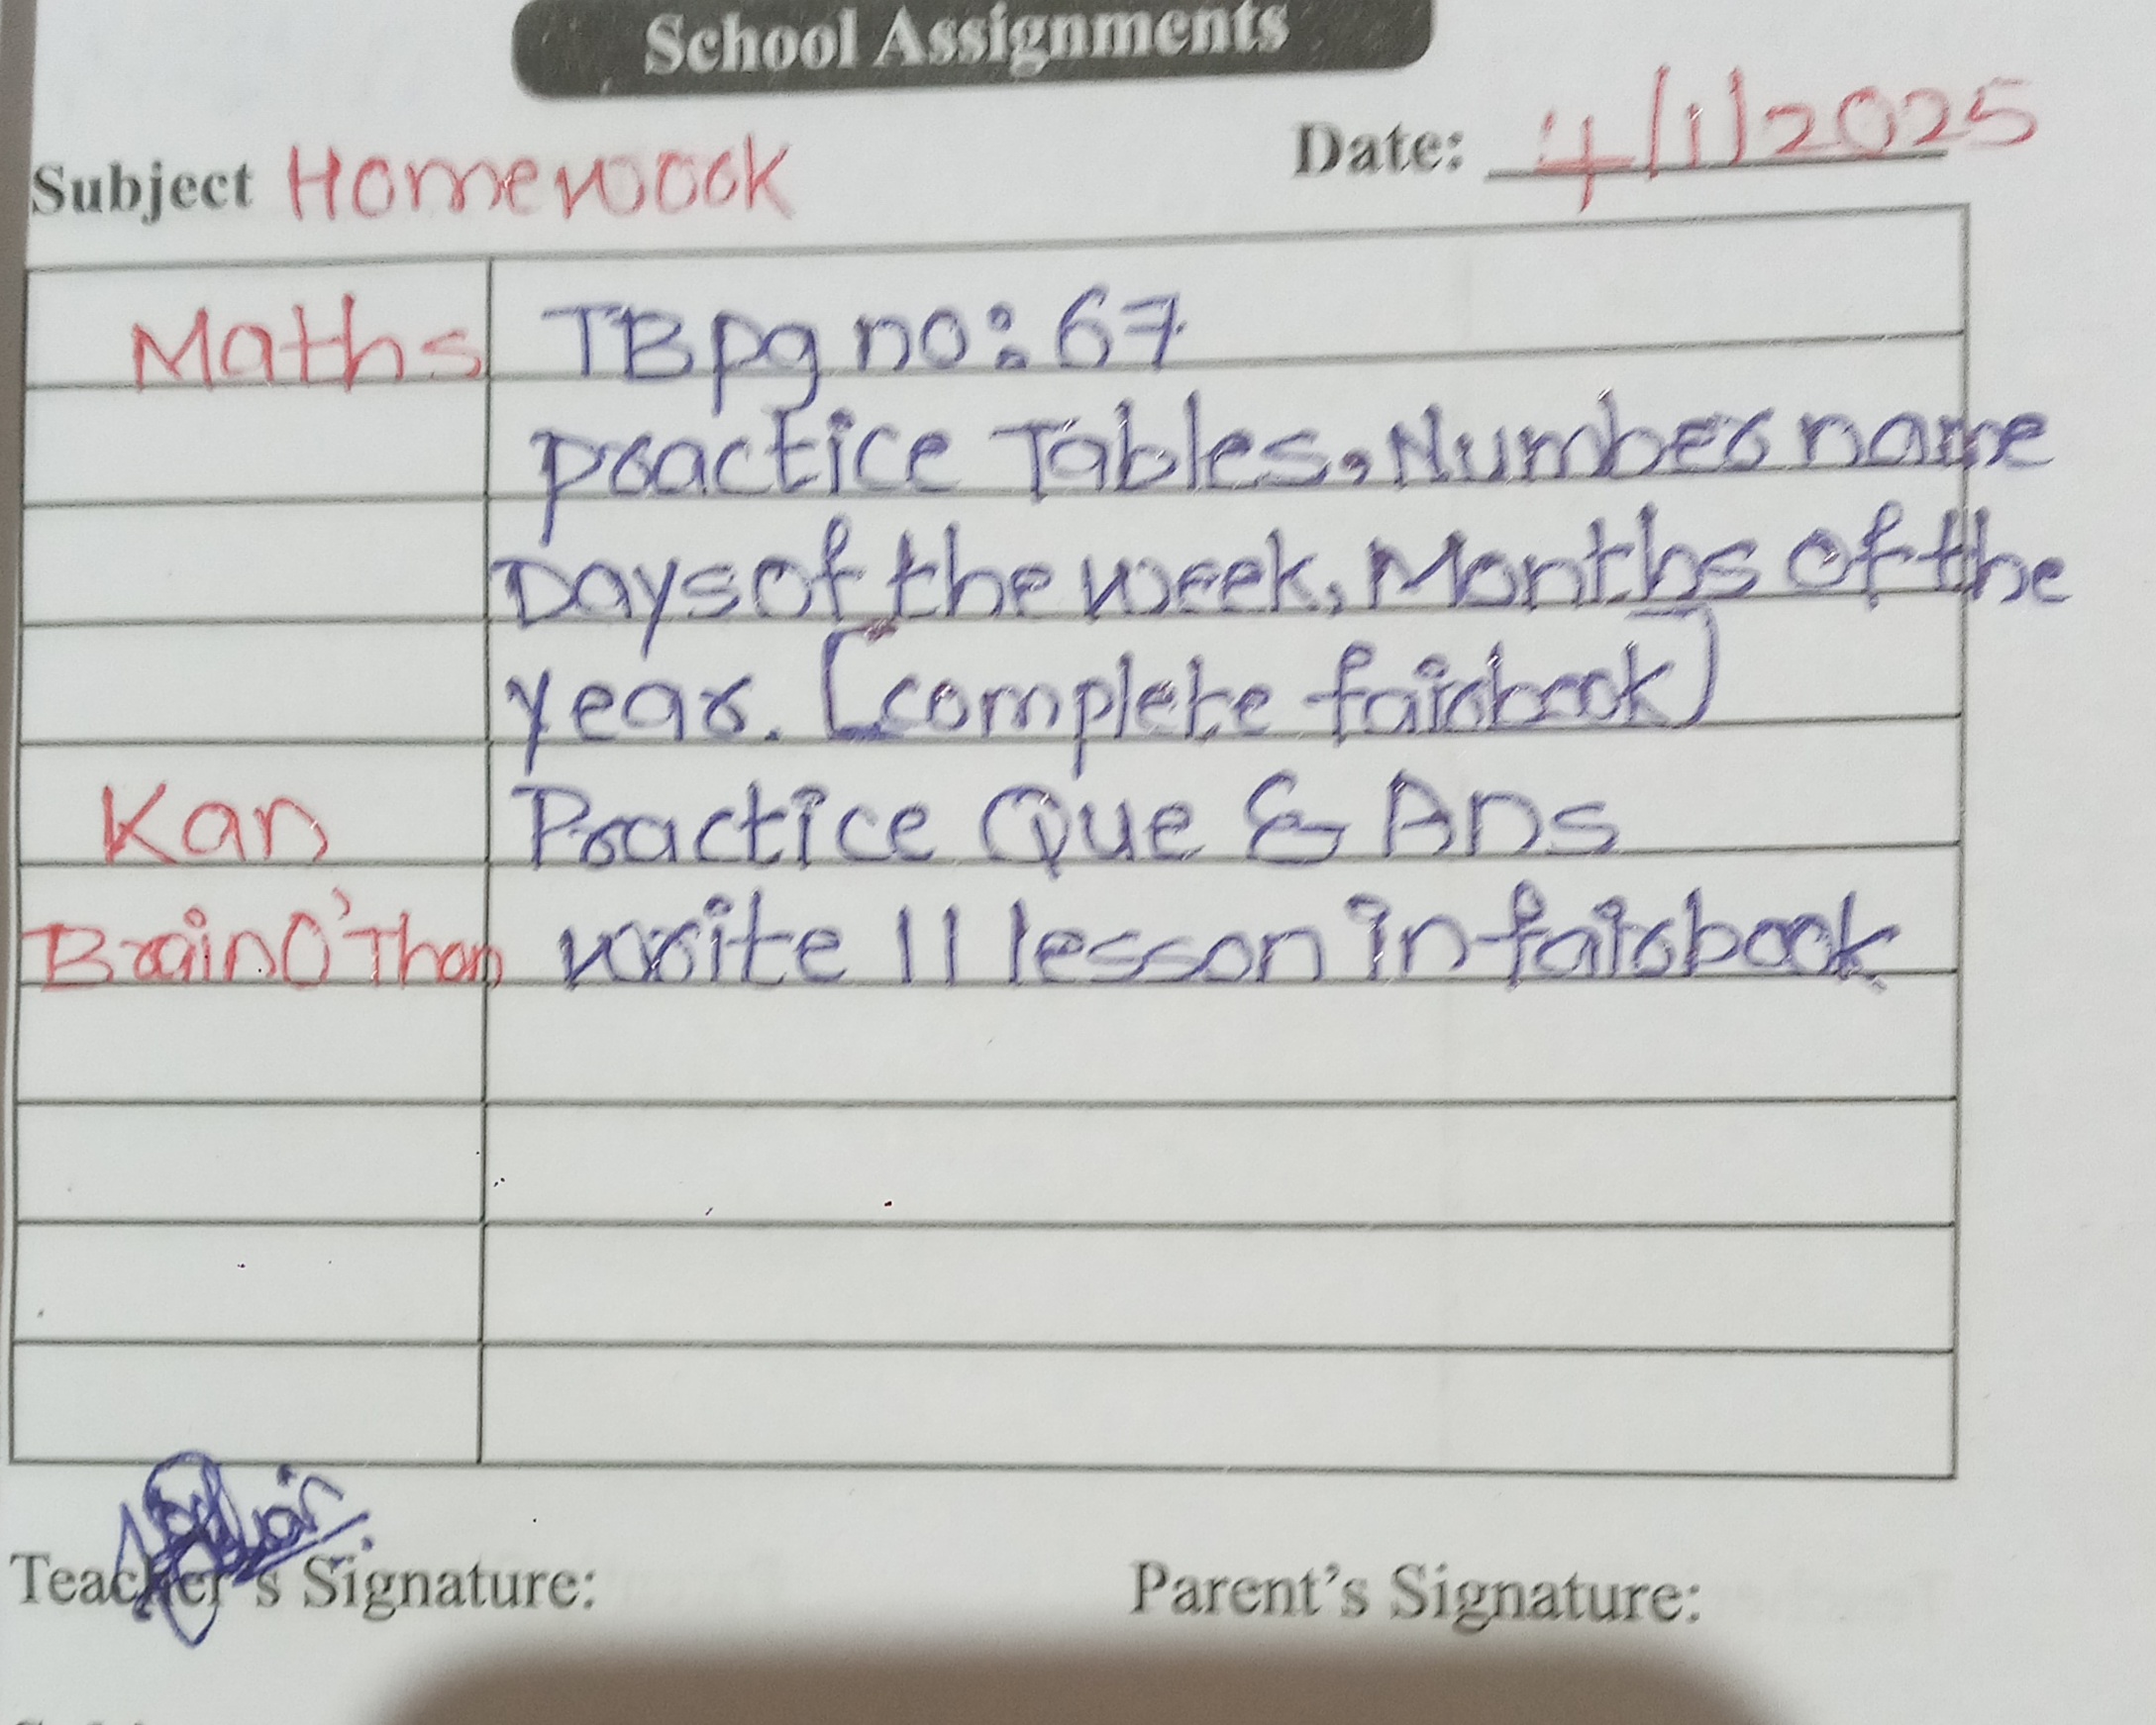 School Assignments
Date: 4/1/2025
Subject Homework
Maths TB pg no: 67
Practice Tables, Number name
Days of the week, Months of the
year. [complete fairbook]
Kan Practice Que & Ans
BrainO'Than write 11 lesson in fairbook
Teacher's Signature:
Parent's Signature: